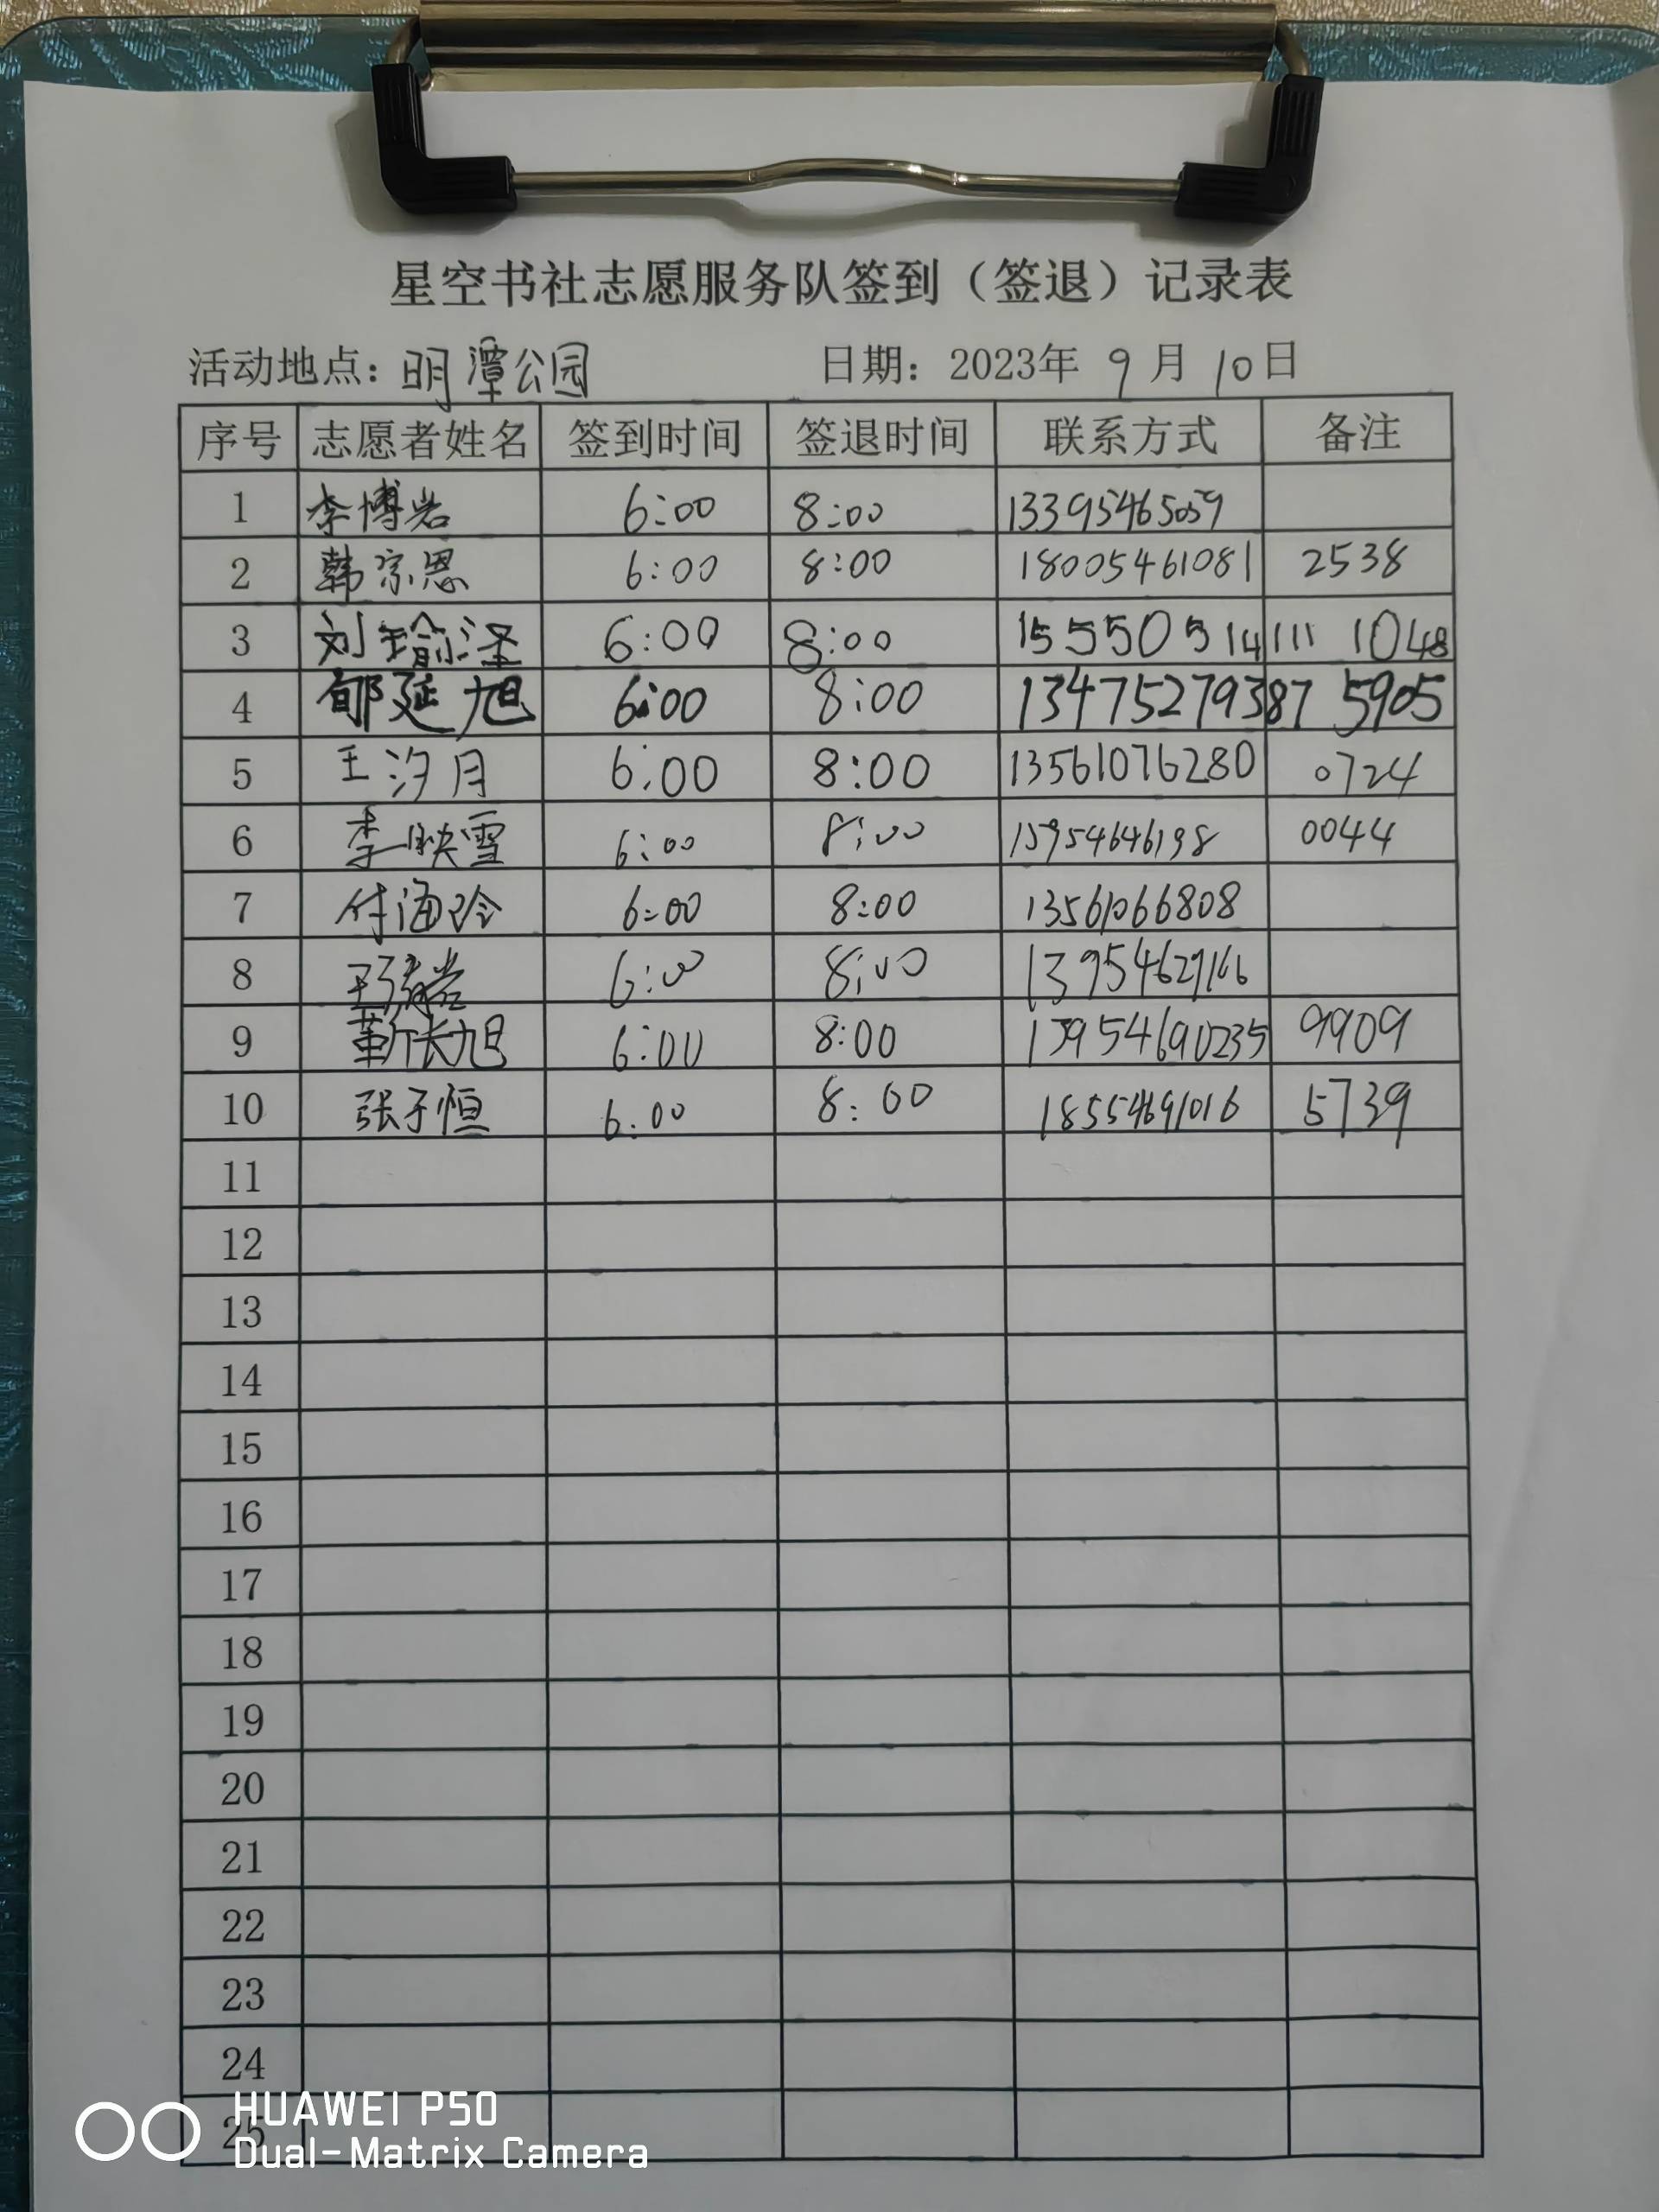 星空书社志愿服务队签到（签退）记录表
活动地点：明潭公园 日期：2023年 9 月 10日
序号 志愿者姓名 签到时间 签退时间 联系方式 备注
1 李博岩 6:00 8:00 13395465059
2 韩宗恩 6:00 8:00 18005461081 2538
3 刘瑜泽 6:00 8:00 15550514111 1048
4 郇延旭 6:00 8:00 13475279387 5905
5 王汐月 6:00 8:00 13561076280 0724
6 李映雪 6:00 8:00 15954646198 0044
7 付海玲 6:00 8:00 13561066808
8 6:00 8:00 13954629166
9 靳长旭 6:00 8:00 13954690235 9909
10 张子恒 6:00 8:00 18554691016 5739
11
12
13
14
15
16
17
18
19
20
21
22
23
24
25
HUAWEI P50
Dual-Matrix Camera